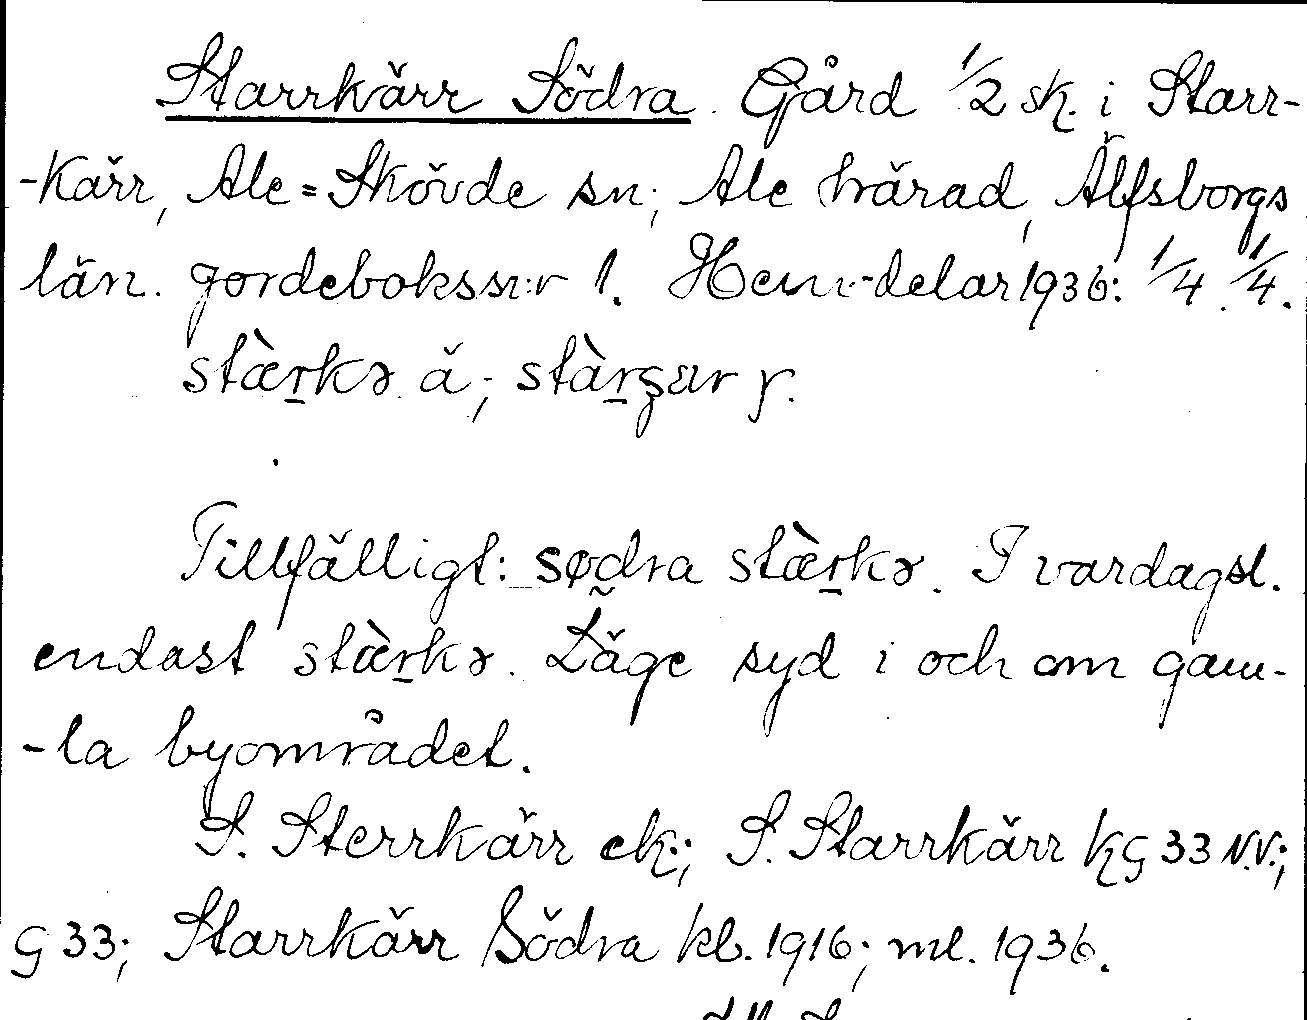 Starrkärr Södra. Gård 1/2 sk. i Starr-
-kärr, Ale=Skövde sn; Ale härad, Älfsborgs
län. Jordeboksnr 1. Hem-delar 1936: 1/4. 1/4.
stæ̀rkə å; stàrʂær y.
Tillfälligt: sødra stæ̀rkə. I vardagsl.
endast stæ̀rkə. Läge syd i och om gam-
-la byområdet.
S. Sterrkärr ek.; S. Starrkärr kG 33 N.V.;
G 33; Starrkärr Södra kb. 1916; ml. 1936.